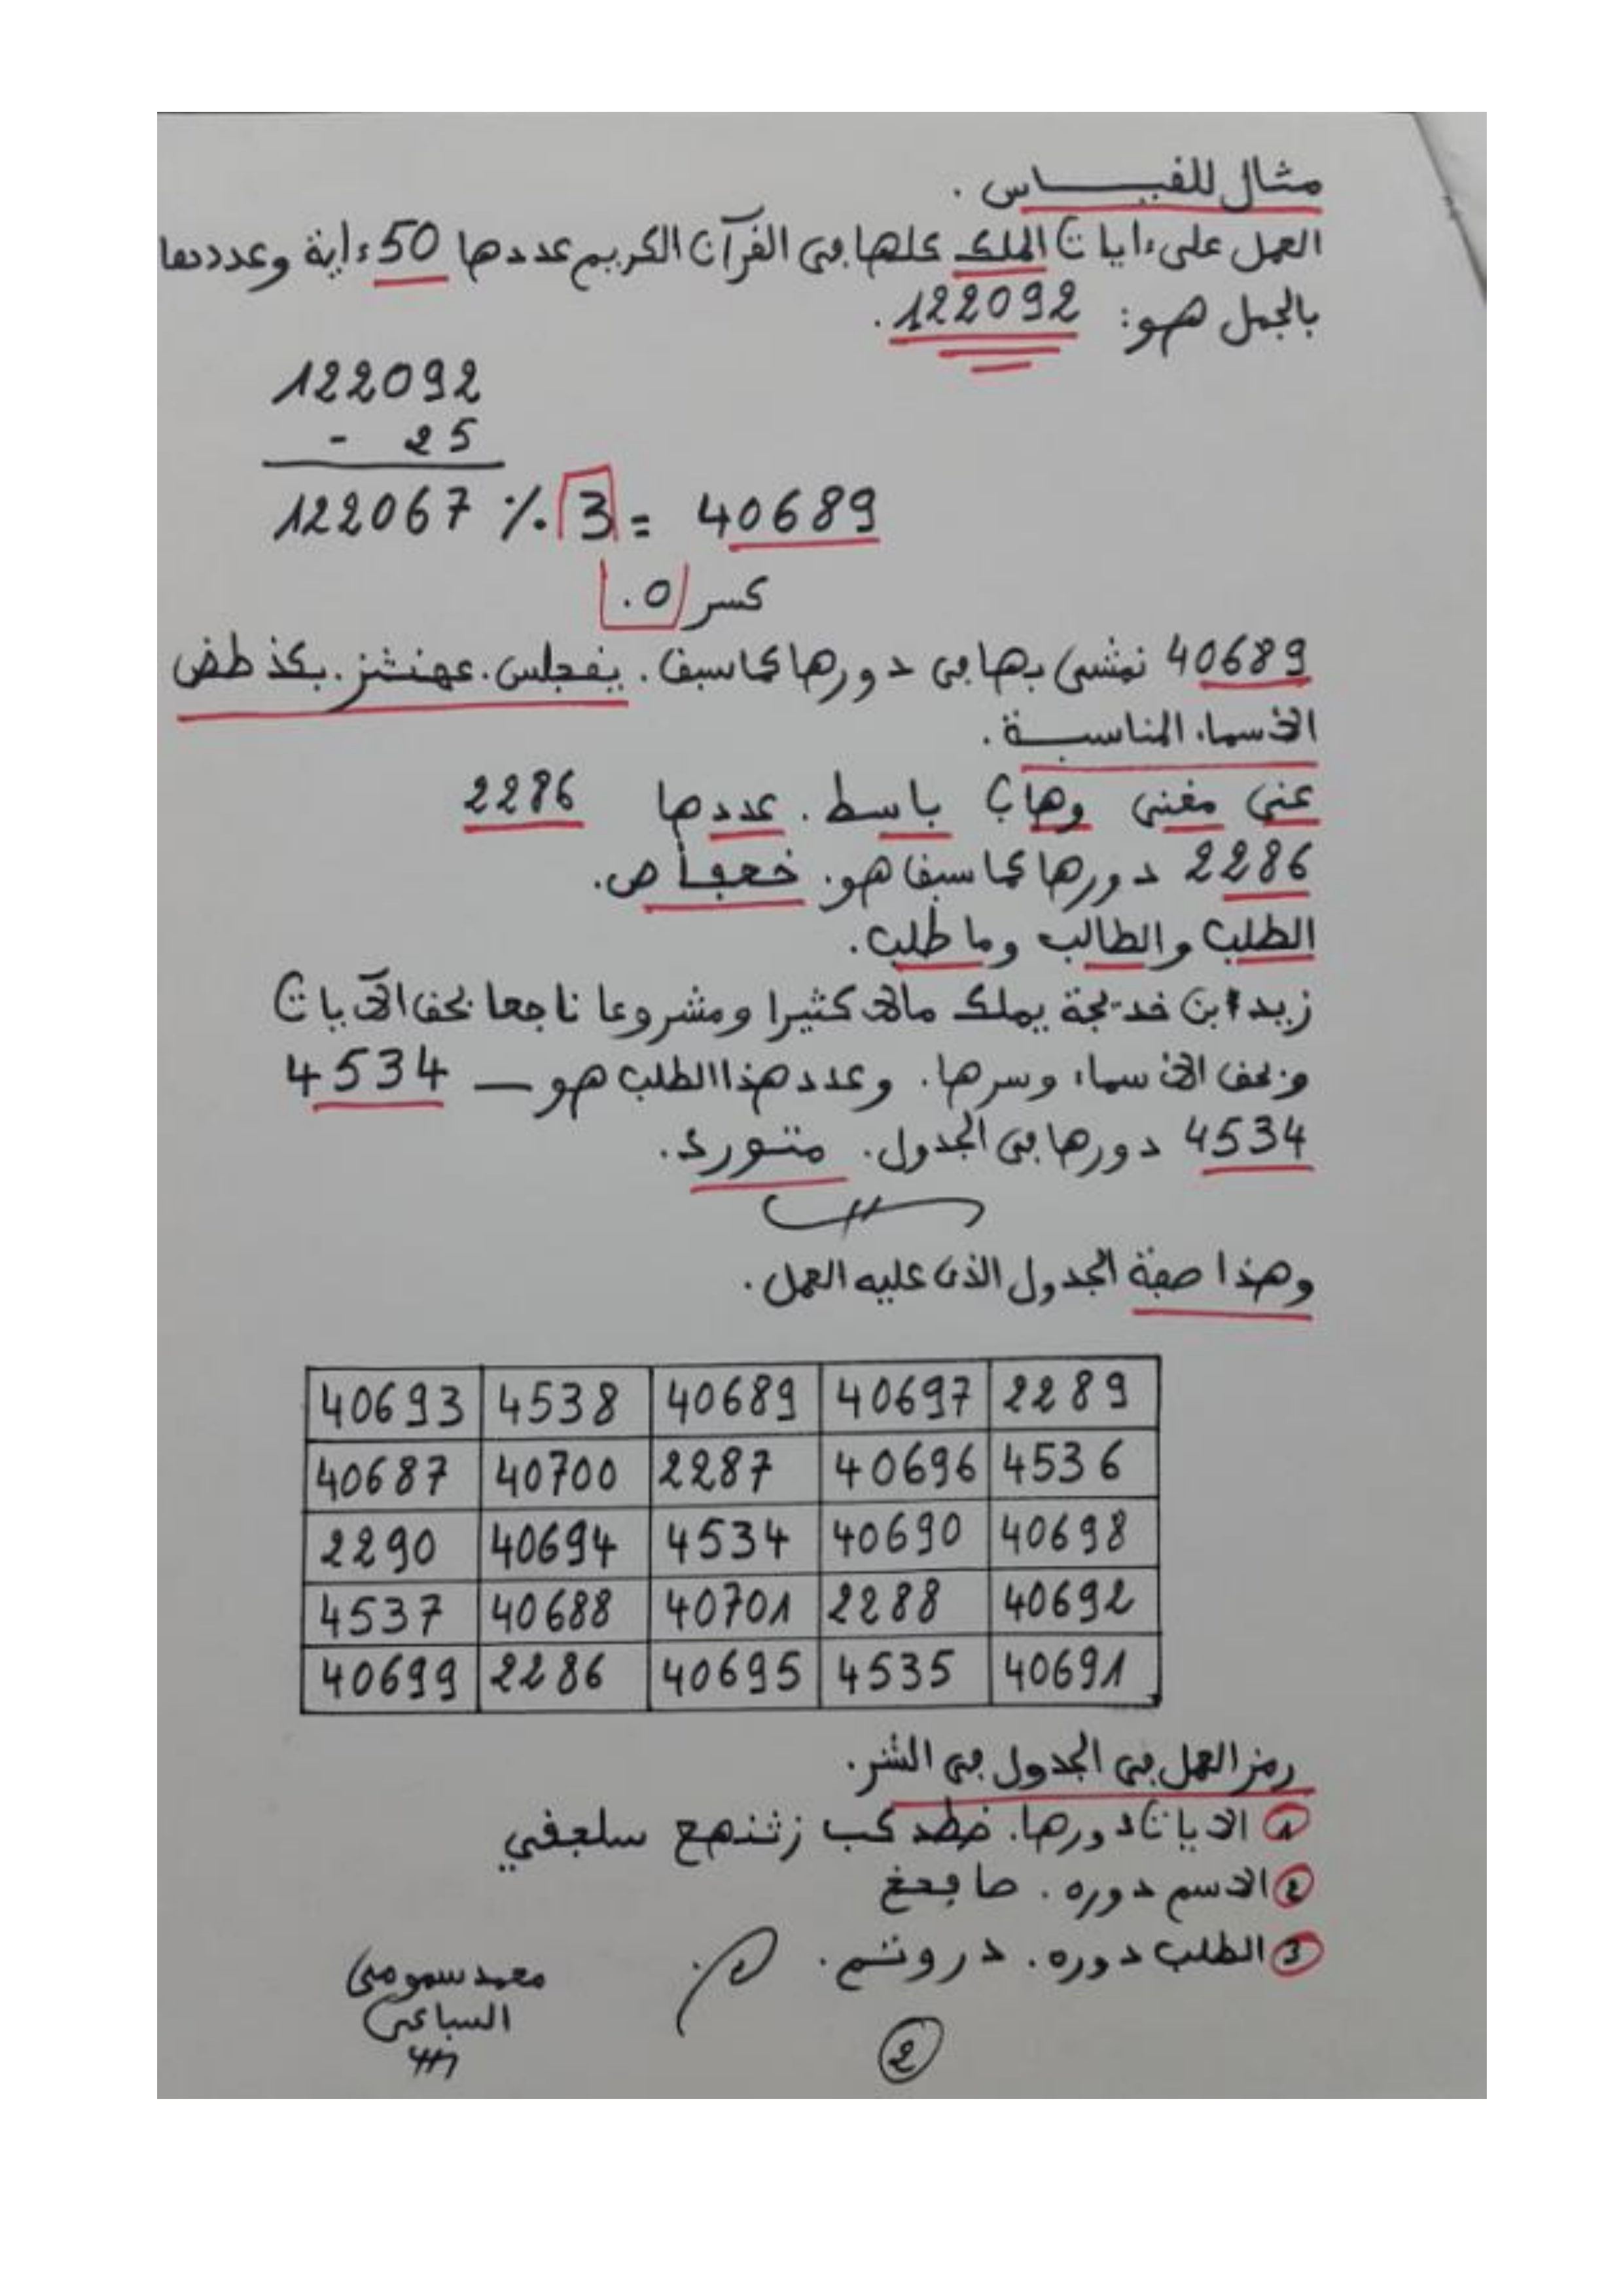 مثال للقياس.
العمل على ءايات الملك كلها في القرآن الكريم عددها 50 ءاية وعددها
بالجمل هو: 122092.
122092
- 25
122067 ٪ 3 = 40689
كسر 0.
40689 نمشي بها في دورها كما سبق. يفجلس. عهنشز. بكذ طض
الأسماء المناسبة.
غني مغني وهاب باسط. عددها 2286
2286 دورها كما سبق هو.
الطلب والطالب وما طلب.
زيد ابن خديجة يملك مالا كثيرا ومشروعا ناجعا بحق الآيات
وبحق الأسماء وسرها. وعدد هذا الطلب هو — 4534
4534 دورها في الجدول.
وهذا صفة الجدول الذي عليه العمل.
40693 4538 40689 40697 2289
40687 40700 2287 40696 4536
2290 40694 4534 40690 40698
4537 40688 40701 2288 40692
40699 2286 40695 4535 40691
رمز العمل في الجدول في النثر.
1 الآيات دورها. خطد كب زثنهع سلعفي
2 الاسم دوره.
3 الطلب دوره.
محمد سموني
السباعي
2